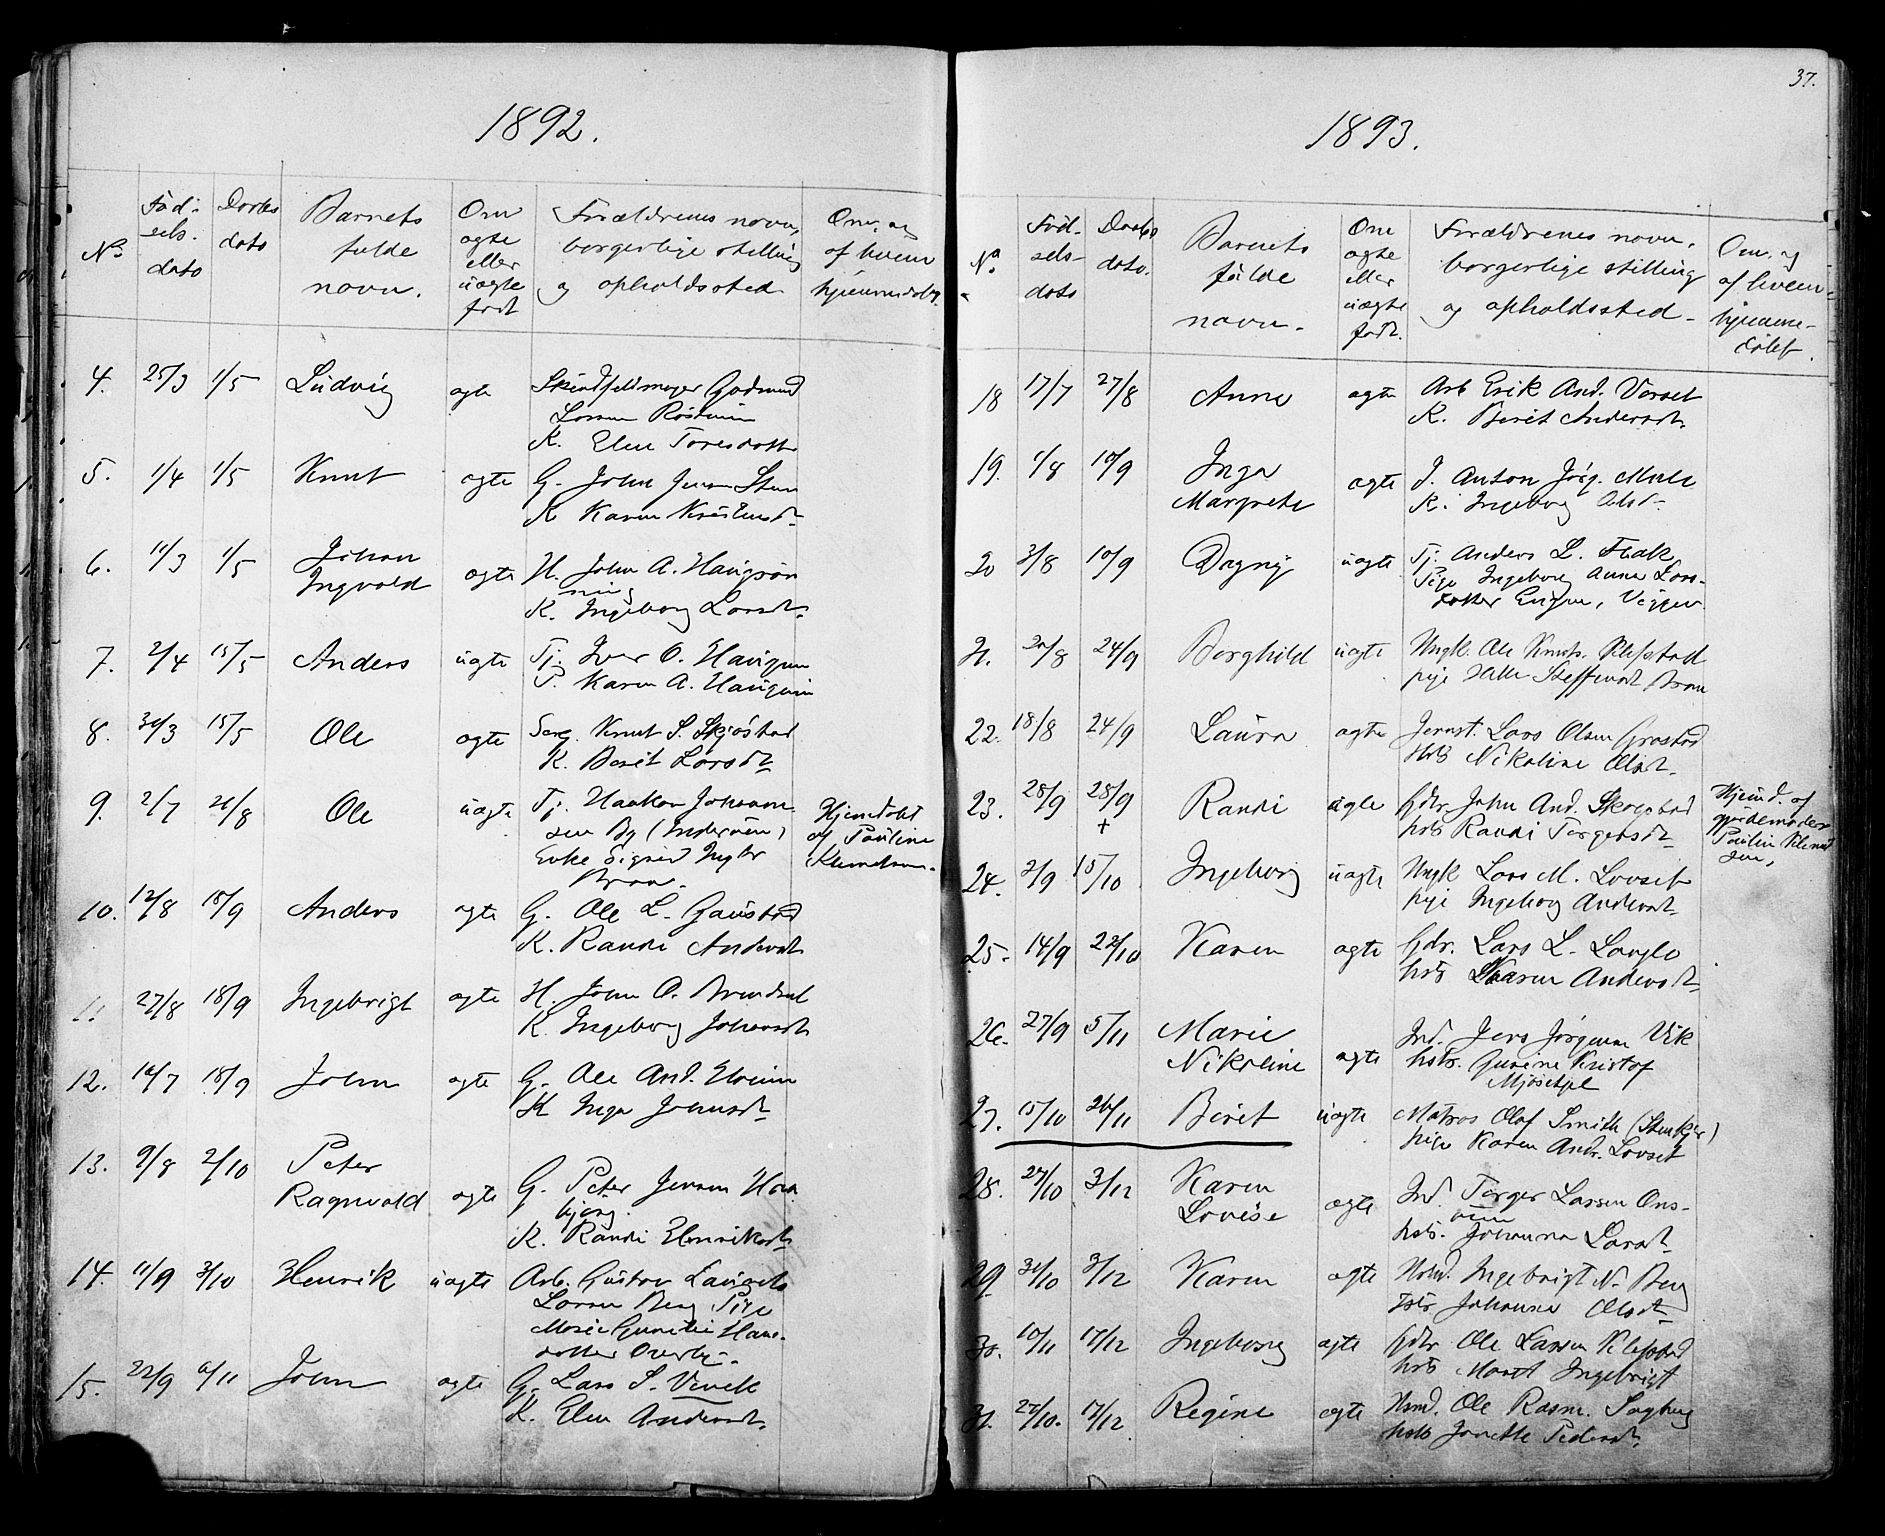 1892.
No
Fød-
sels-
dato
Daabs
dato
Barnets
fulde
navn.
Om
ægte
eller
uægte
født
Forældrenes navn,
borgerlige stilling
og opholdssted
Om, og
af hvem
hjemmedøbt
4. 25/3 1/5 Ludvig ægte
Gudmund
Larsen
K. Elen Toresdatt
5. 1/4 1/5 Knut ægte G. John Jensen
K Karen
6. 11/3 1/5 Johan
Ingvald ægte H. John A. Haugsøn
ning
K. Ingeborg Larsdt.
7. 2/4 15/5 Anders uægte Tj. Iver O. Haugsn
P. Karen A.
8. 30/3 15/5 Ole ægte Serg. Knut S. Skjøstad
K. Berit Larsdt
9. 2/7 21/8 Ole uægte Tj. Haakon Johann
sen By (Inderøen)
Enke Sigrid
Hjemdøbt
af Pauline
Klemetsen.
10. 12/8 18/9 Anders ægte G. Ole L. Gaustad
K. Randi Andersdt
11 27/8 18/9 Ingebrigt ægte H. John O.
K. Ingeborg Johansdt
12. 14/7 18/9 John ægte G. Ole And. Elvium
K Inga Johnsdt
13. 9/8 2/10 Peter
Ragnvald ægte G. Peter Jensen
K. Randi Henriksdt
14. 11/9 3/10 Henrik uægte Arb. Gustav
Larsen Berg Pige
Marie
datter Overby.
15. 22/9 6/11 John ægte G. Lars S. Venek
K. Elen Andersdt.
37.
1893.
No
Fød-
sels-
dato
Daabs
dato.
Barnets
fulde
navn.
Om
ægte
eller
uægte
født.
Forældrenes navn,
borgerlige stilling
og opholdssted
Om, og
af hvem
hjemme-
døbt.
18 17/7 27/8 Anne ægte Arb Erik And. Vorset
K. Berit Andersdt.
19. 1/8 10/9 Inga
Margrete ægte J. Anton Jørg.
K. Ingeborg Olsdt
20 3/8 10/9 Dagny uægte Tj. Anders L.
Pige Ingeborg Anna Lars-
datter
21. 20/8 24/9 Borghild uægte Ungk. Ole Knuts. Klefstad
pige Steffensdt
22. 18/8 24/9 Laura ægte Lars Olsen Grostad
Hstr Nikoline Olsdt.
23. 28/9 28/9
+ Randi ægte Gdr John And. Skogstad
hstr Randi Torgersdt
Hjemd. af
gjordemoder
Paulin Klemet
sen,
24. 2/9 15/10 Ingeborg uægte Ungk Lars M. Lovset
pige Ingeborg Andersdt
25. 14/9 22/10 Karen ægte Gdr. Lars L. Langlo
hstr Karen Andersdt
26. 27/9 5/11 Marie
Nikoline ægte Ind. Jens Jørgensen Vik
hstr. Gurine Kristof
27. 15/10 26/11 Beret uægte Matros Olaf Smith (Stenkjer)
pige Karen Andr. Lovset
28. 27/10 3/12 Karen
Lovise ægte Ind. Torger Larsen Ons-
øien
hstr. Johanna Larsdt
29. 31/10 3/12 Karen ægte Husmd. Ingebrigt N. Berg
hstr Johanna Olsdt
30. 10/11 17/12 Ingeborg ægte Gdr Ole Larsen Klefstad
hstr Maret Ingebrigt
31. 27/10. 17/12. Regine ægte Husmd. Ole Rasm. Sagberg
hstr Janette Pedersdt.